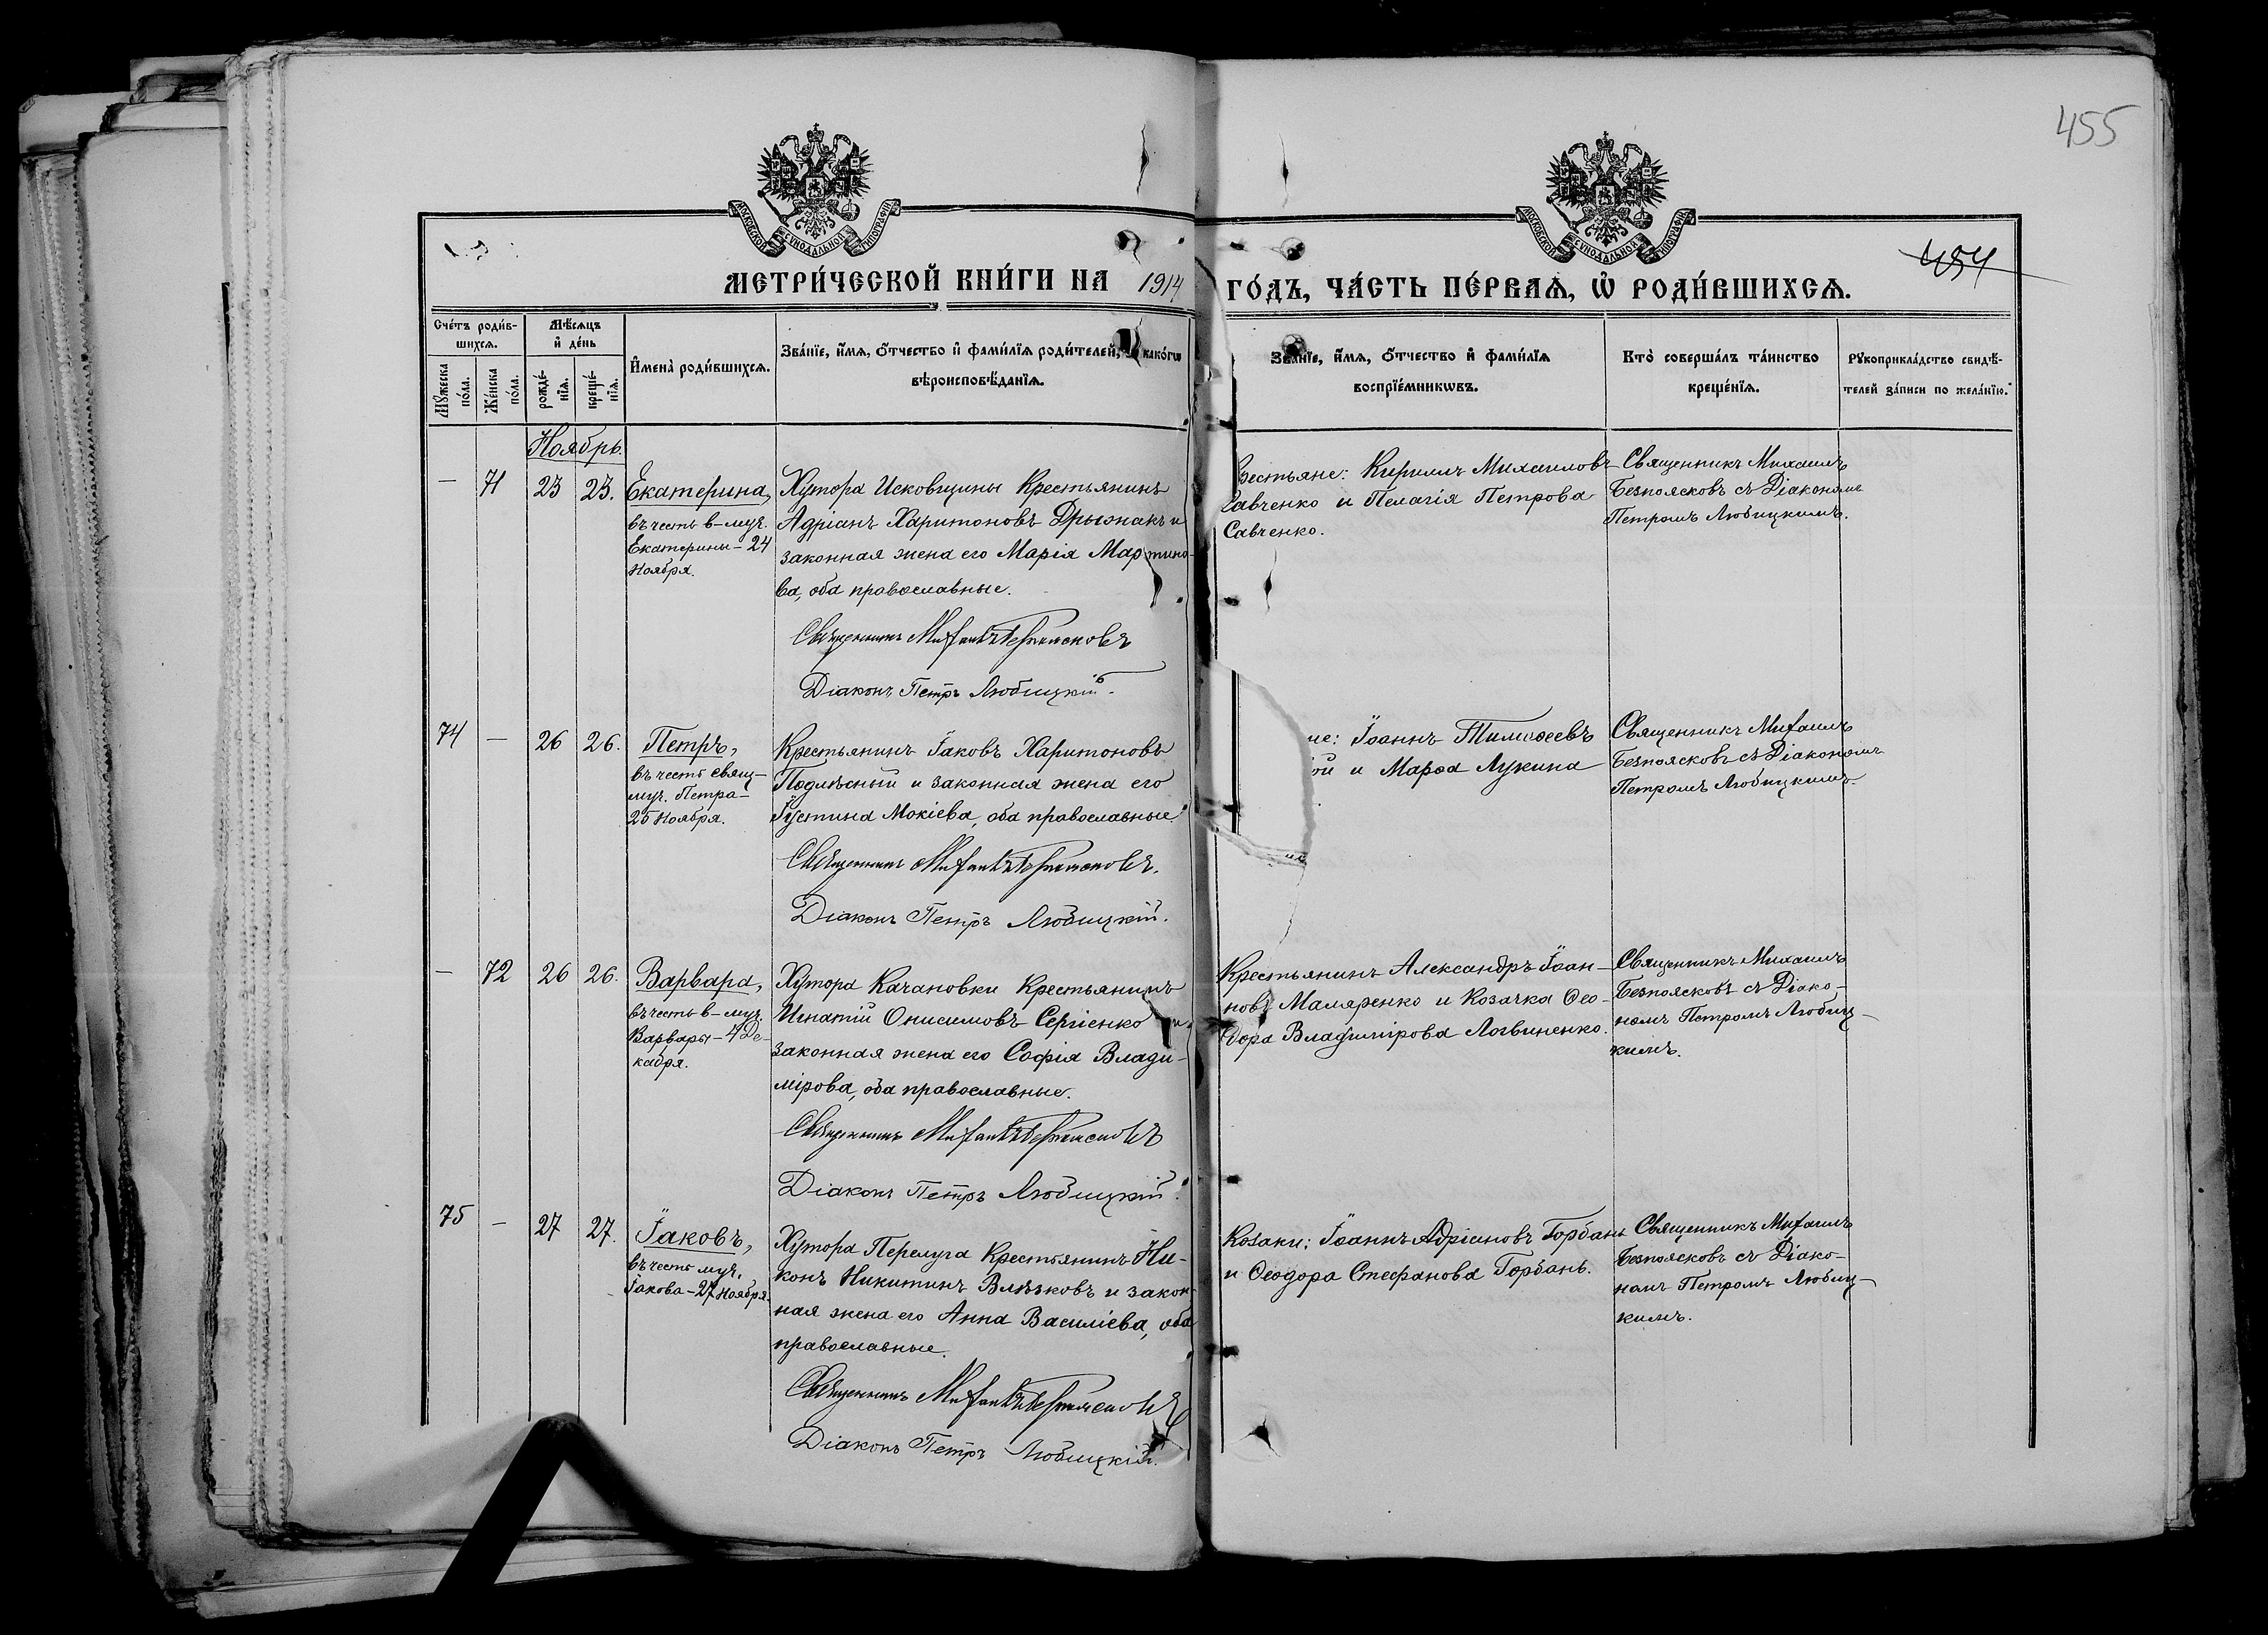 455
454
МОСКОВСКОЙ СѴНОДАЛЬНОЙ ТИПОГРАФІИ
МОСКОВСКОЙ СѴНОДАЛЬНОЙ ТИПОГРАФІИ
МЕТРИ́ЧЕСКОЙ КНИ́ГИ НА 1914 ГО́ДЪ, ЧА́СТЬ ПЕ́РВАѦ, Ѡ҆ РОДИ́ВШИХСѦ.
Сче́тъ роди́в-
шихсѧ.
Мꙋ́жеска по́ла.
Же́нска по́ла.
Мѣ́сѧцъ
и҆ де́нь
рожде́-
нїѧ.
креще́-
нїѧ.
И҆мена̀ роди́вшихсѧ.
Зва́нїе, и҆́мѧ, ѻ҆́тчество и҆ фами́лїѧ роди́телей, како́гѡ
вѣроисповѣ́данїѧ.
Зва́нїе, и҆́мѧ, ѻ҆́тчество и҆ фами́лїѧ
воспрїе́мникѡвъ.
Кто̀ соверша́лъ та́инство
креще́нїѧ.
Рꙋкоприкла́дство свидѣ́-
телей за́писи по жела́нїю.
Ноябрь.
— 71 23 23.
Екатерина,
въ честь в-муч.
Екатерины – 24
Ноября.
Хутора Исковщины Крестьянинъ
Адріанъ Харитоновъ Дрыжакъ и
законная жена его Марія Мартино-
ва, оба православные.
Священникъ Михаилъ Безпоясковъ
Діаконъ Петръ Любицкій.
рестьяне: Кириллъ Михаиловъ
Савченко и Пелагія Петрова
Савченко.
Священникъ Михаилъ
Безпоясковъ съ Діакономъ
Петромъ Любицкимъ.
74 — 26 26.
Петръ,
въ честь свящ-
муч. Петра –
25 Ноября.
Крестьянинъ Іаковъ Харитоновъ
Подлѣсный и законная жена его
Іустина Мокіева, оба православные.
Священникъ Михаилъ Безпоясковъ.
Діаконъ Петръ Любицкій.
не: Іоаннъ Тимоѳеевъ
ой и Марѳа Лукина
Священникъ Михаилъ
Безпоясковъ съ Діакономъ
Петромъ Любицкимъ.
— 72 26 26.
Варвара,
въ честь в-муч.
Варвары – 4 Де-
кабря.
Хутора Качановки Крестьянинъ
Игнатій Онисимовъ Сергіенко и
законная жена его Софія Влади-
мірова, оба православные.
Священникъ Михаилъ Безпоясковъ
Діаконъ Петръ Любицкій.
Крестьянинъ Александръ Іоан-
новъ Маляренко и Козачка Ѳео-
дора Владимірова Логвиненко.
Священникъ Михаилъ
Безпоясковъ съ Діако-
номъ Петромъ Любиц-
кимъ.
75 — 27 27.
Іаковъ,
въ честь муч.
Іакова – 27 Ноября.
Хутора Перелуга Крестьянинъ Ни-
конъ Никитинъ и закон-
ная жена его Анна Василіева, оба
православные.
Священникъ Михаилъ Безпоясковъ
Діаконъ Петръ Любицкій.
Козаки: Іоаннъ Адріановъ Горбань
и Ѳеодора Стефанова Горбань.
Священникъ Михаилъ
Безпоясковъ съ Діако-
номъ Петромъ Любиц-
кимъ.